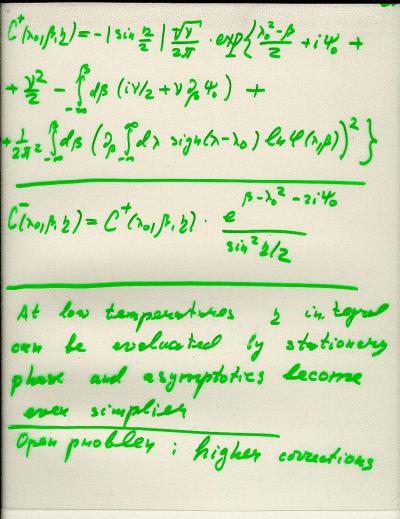 C⁺(λ₀,β,η) = -|sin η/2| √ν/2π · exp{ (λ₀²-β)/2 + iψ₀ +
+ ν²/2 - ∫_{-∞}^{β} dβ (iν/2 + ν ∂_β ψ₀) +
+ 1/2π² ∫_{-∞}^{β} dβ ( ∂_β ∫_{-∞}^{∞} dλ sign(λ-λ₀) ln φ(λ,β) )² }
C⁻(λ₀,β,η) = C⁺(λ₀,β,η) · e^{β-λ₀²-2iψ₀} / sin² η/2
At low temperatures η integral
can be evaluated by stationary
phase and asymptotics become
even simplier
Open problem : higher corrections